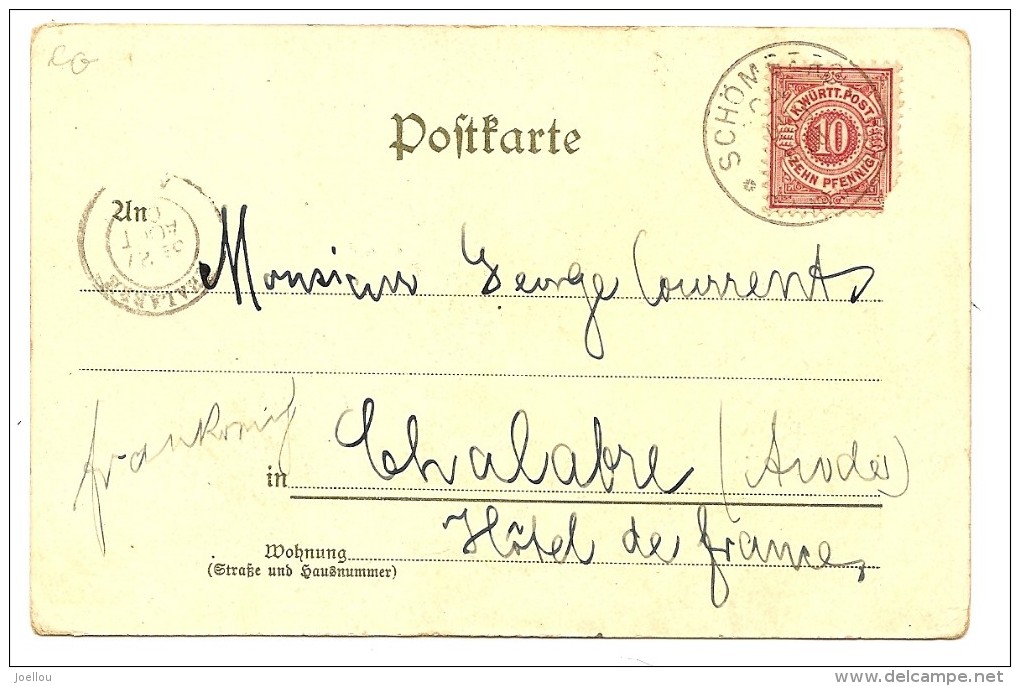 Postkarte
SCHÖMBERG
K. WÜRTT. POST
10
ZEHN PFENNIG
An
21
AOUT
CHALABRE
Monsieur George Courrent
frankreich
in Chalabre (Aude)
Hôtel de france,
Wohnung
(Straße und Hausnummer)
joellou
www.delcampe.net